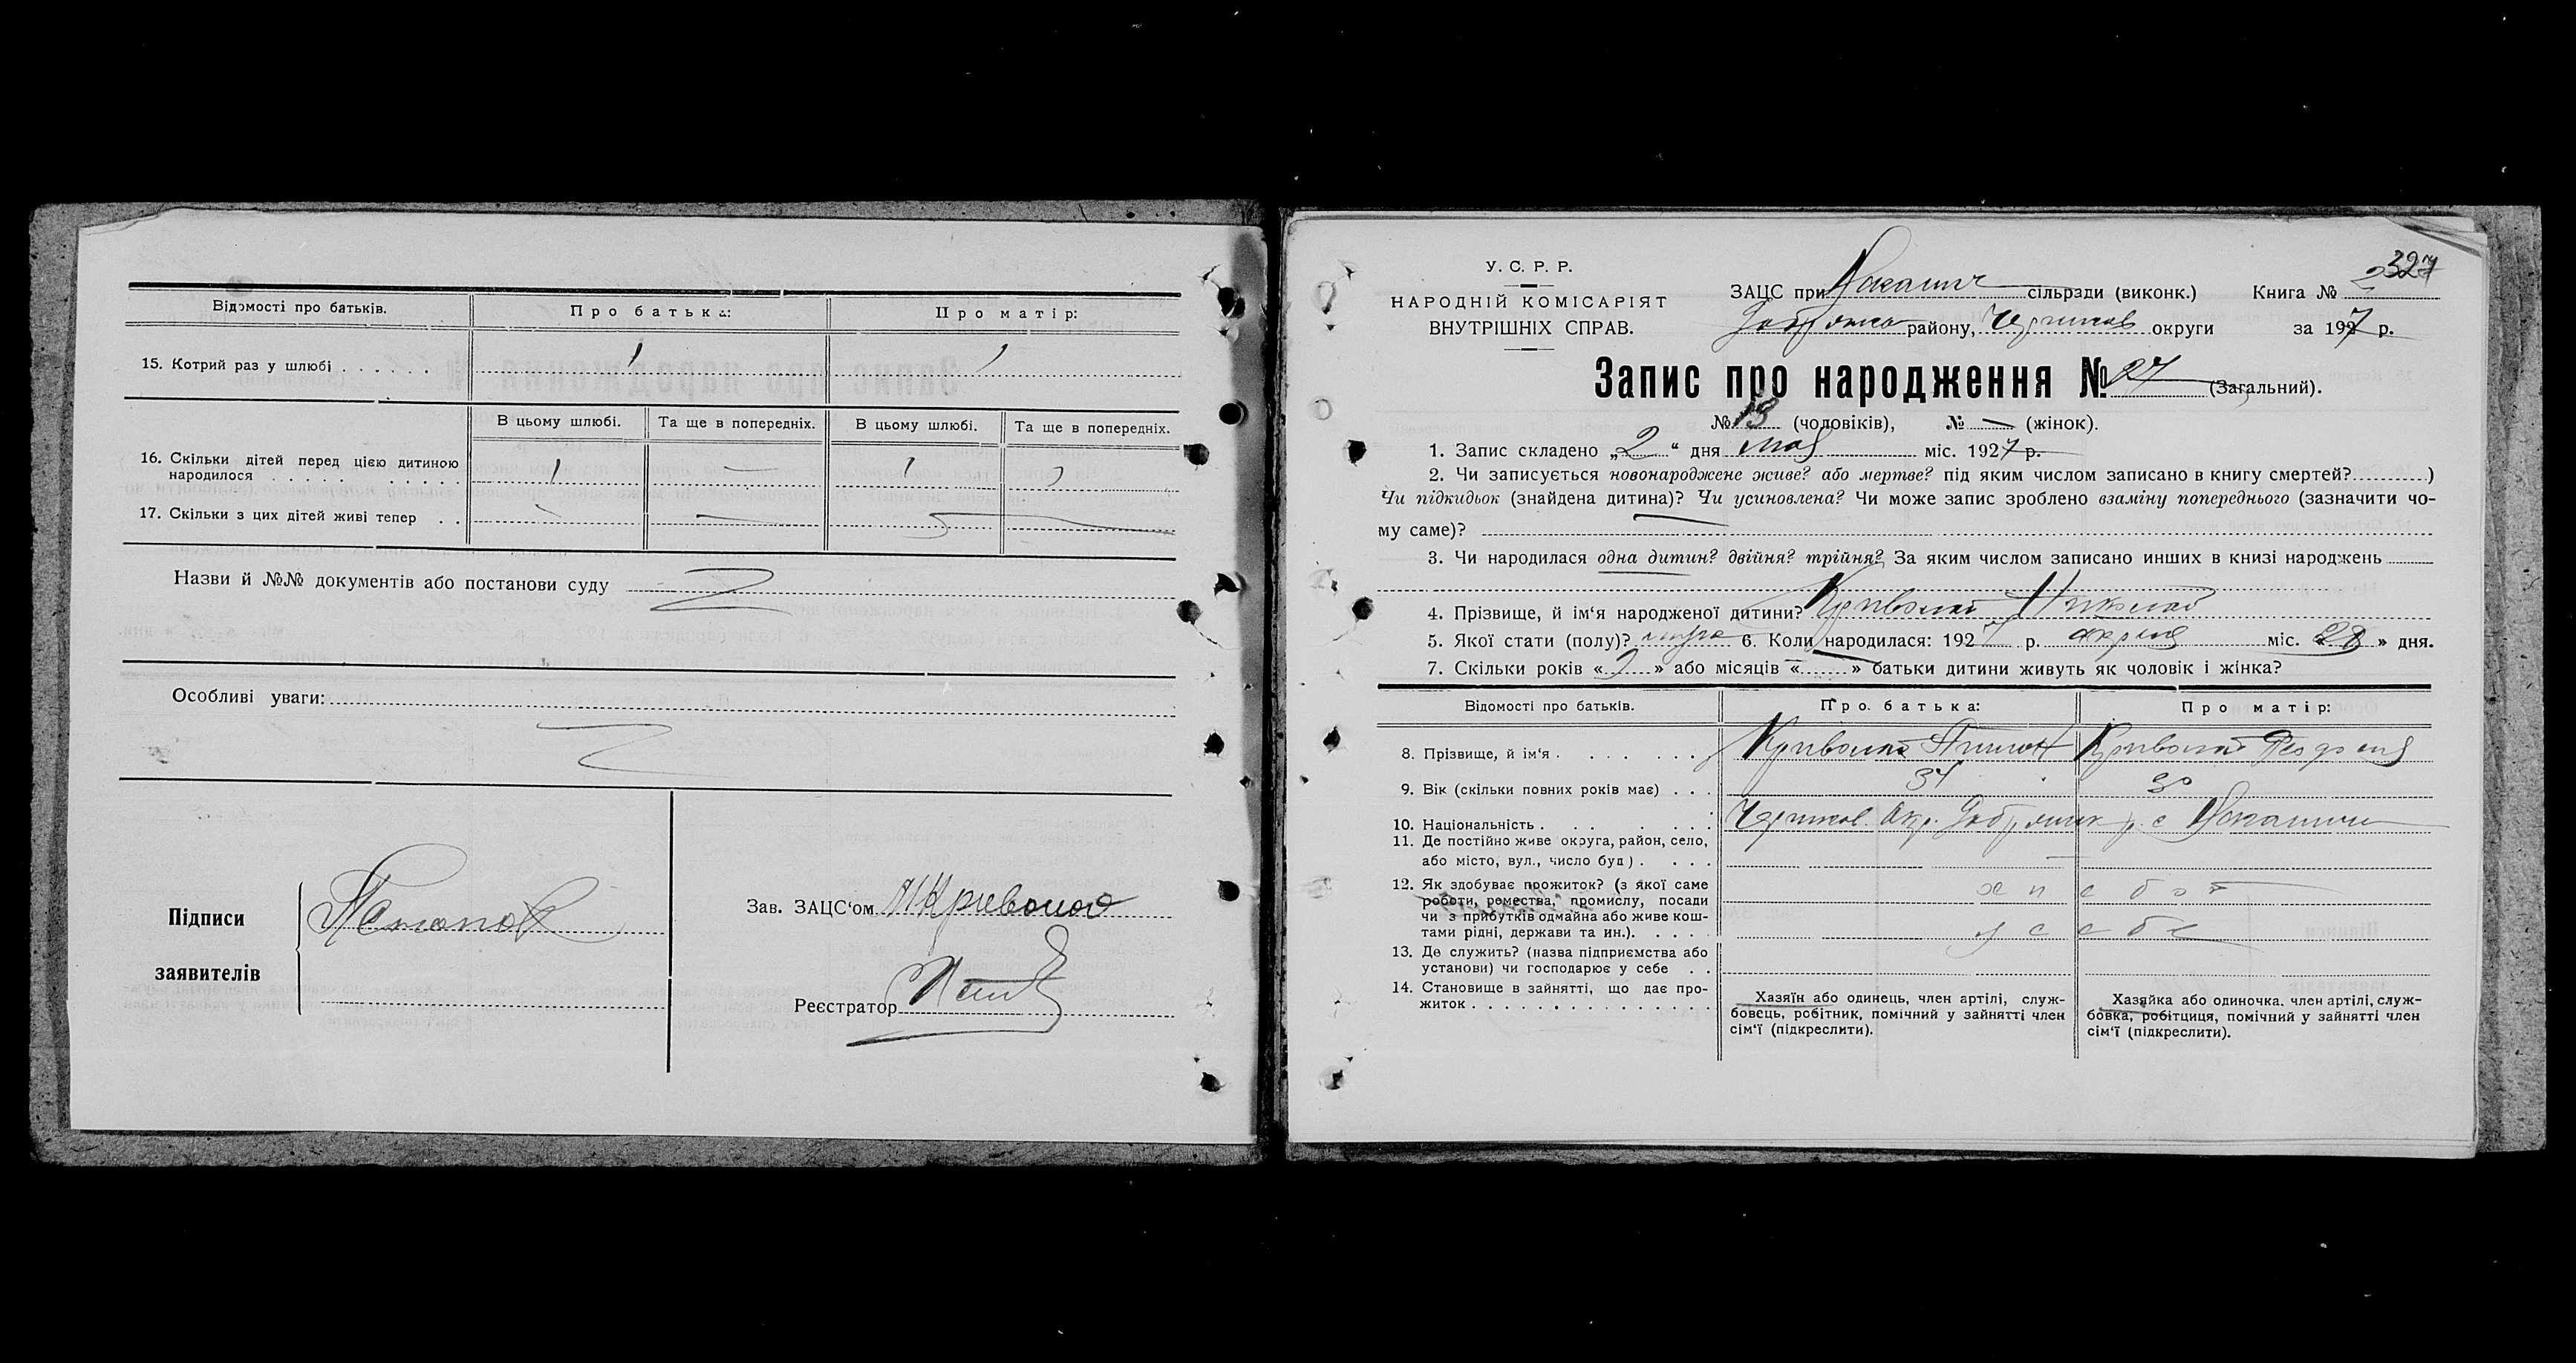 Відомості про батьків. Про батька: Про матір:
15. Котрий раз у шлюбі . . . . . . 1 1
В цьому шлюбі. Та ще в попередніх. В цьому шлюбі. Та ще в попередніх.
16. Скільки дітей перед цією дитиною
народилося . . . . . . . . . . 1 — 1
17. Скільки з цих дітей живі тепер . . — —
Назви й №№ документів або постанови суду
Особливі уваги:
Підписи
заявителів
Зав. ЗАЦС‘ом
Реєстратор
327
У. С. Р. Р.
НАРОДНІЙ КОМІСАРІЯТ
ВНУТРІШНІХ СПРАВ.
ЗАЦС при сільради (виконк.) Книга № 2
району, Чернигов округи за 1927 р.
Запис про народження № 27 (Загальний).
№ 13 (чоловіків), № — (жінок).
1. Запис складено „2“ дня мая міс. 1927 р.
2. Чи записується новонароджене живе? або мертве? під яким числом записано в книгу смертей?..........)
Чи підкидьок (знайдена дитина)? Чи усиновлена? Чи може запис зроблено взаміну попереднього (зазначити чо-
му саме)? —
3. Чи народилася одна дитин? двійня? трійня? За яким числом записано инших в книзі народжень
4. Прізвище, й ім‘я народженої дитини? Николай
5. Якої стати (полу)? 6. Коли народилася: 1927 р. апреля міс. «28» дня.
7. Скільки років «2» або місяців «—» батьки дитини живуть як чоловік і жінка?
Відомості про батьків. Про батька: Про матір:
8. Прізвище, й ім‘я . . . . . .
9. Вік (скільки повних років має) . . . 34 30
10. Національність . . . . . . Чернигов. Окр.
11. Де постійно живе округа, район, село,
або місто, вул., число буд) . . . . —
12. Як здобуває прожиток? (з якої саме
роботи, ремества, промислу, посади
чи з прибутків одмайна або живе кош-
тами рідні, держави та ин.). . . . .
13. Де служить? (назва підприємства або
установи) чи господарює у себе . .
14. Становище в зайнятті, що дає про-
житок . . . . . . . . . . . . . .
Хазяїн або одинець, член артілі, служ-
бовець, робітник, помічний у зайнятті член
сім‘ї (підкреслити).
Хазяйка або одиночка. член артілі, служ-
бовка, робітциця, помічний у зайнятті член
сім‘ї (підкреслити).